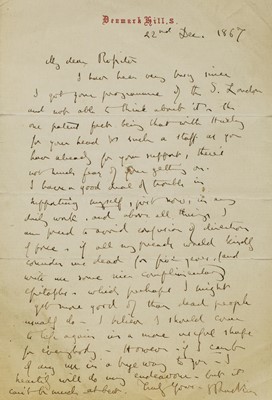 Denmark Hill, S.
22nd Dec. 1867
My dear
I have been very busy since
I got your programme of the S. London
and not able to think about it - the
one patent fact being that with Huxley
for your head & such a staff as you
have already for your support, there's
not much fear of your getting on.
I have a good deal of trouble in
supporting myself, just now, in my
daily work - and above all things I
am forced to avoid confusion of direction
of force - if all my friends would kindly
consider me dead for five years - (and
write me some nice complimentary
epitaphs - which perhaps I might
get more good of than dead people
usually do - I believe I should come
to life again in a more useful shape
for everybody - However - if I can be
of any use in a bye way to you - I
heartily will do my endeavour - but it
can't be much at best - Ever yours - J Ruskin